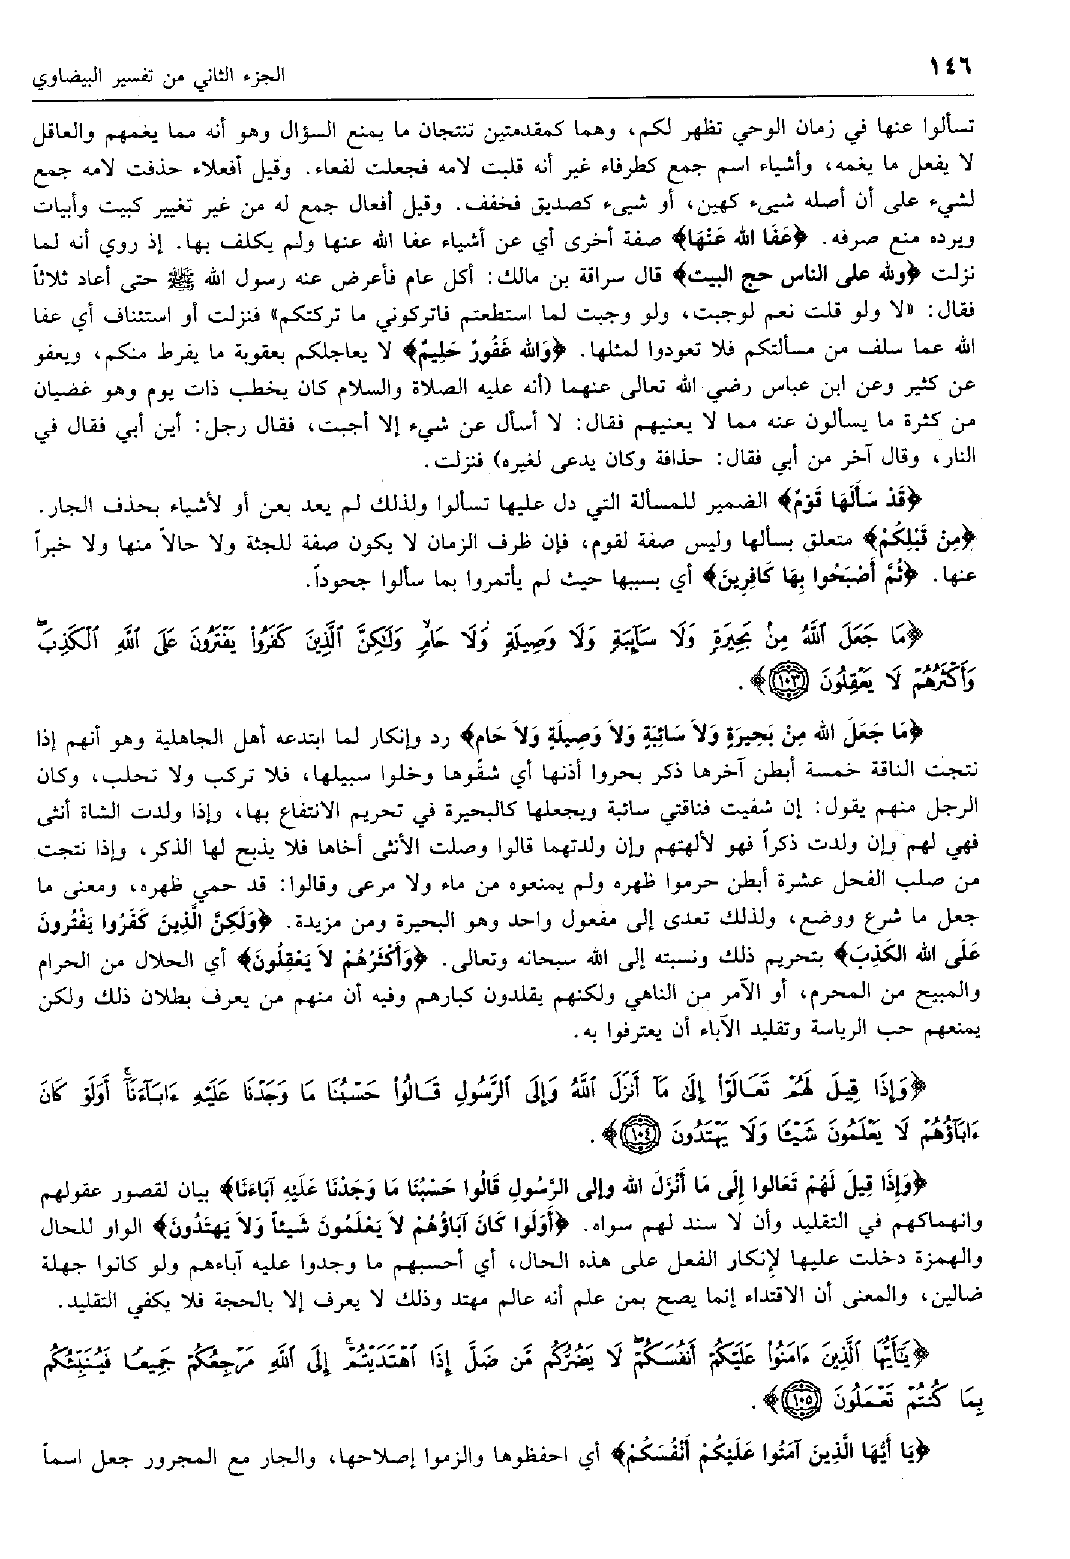 ١٤٦
الجزء الثاني من تفسير البيضاوي
تسألوا عنها في زمان الوحي تظهر لكم، وهما كمقدمتين تنتجان ما يمنع السؤال وهو أنه مما يغمهم والعاقل
لا يفعل ما يغمه، وأشياء اسم جمع كطرفاء غير أنه قلبت لامه فجعلت لفعاء. وقيل أفعلاء حذفت لامه جمع
لشيء على أن أصله شييء كهين، أو شييء كصديق فخفف. وقيل أفعال جمع له من غير تغيير كبيت وأبيات
ويرده منع صرفه. ﴿عَفَا الله عَنْهَا﴾ صفة أخرى أي عن أشياء عفا الله عنها ولم يكلف بها. إذ روي أنه لما
نزلت ﴿ولله على الناس حج البيت﴾ قال سراقة بن مالك: أكل عام فأعرض عنه رسول الله ﷺ حتى أعاد ثلاثاً
فقال: «لا ولو قلت نعم لوجبت، ولو وجبت لما استطعتم فاتركوني ما تركتكم» فنزلت أو استئناف أي عفا
الله عما سلف من مسألتكم فلا تعودوا لمثلها. ﴿وَالله غَفُورٌ حَلِيمٌ﴾ لا يعاجلكم بعقوبة ما يفرط منكم، ويعفو
عن كثير وعن ابن عباس رضي الله تعالى عنهما (أنه عليه الصلاة والسلام كان يخطب ذات يوم وهو غضبان
من كثرة ما يسألون عنه مما لا يعنيهم فقال: لا أسأل عن شيء إلا أجبت، فقال رجل: أين أبي فقال في
النار، وقال آخر من أبي فقال: حذافة وكان يدعى لغيره) فنزلت.
﴿قَدْ سَأَلَهَا قَوْمٌ﴾ الضمير للمسألة التي دل عليها تسألوا ولذلك لم يعد بعن أو لأشياء بحذف الجار.
﴿مِنْ قَبْلِكُمْ﴾ متعلق بسألها وليس صفة لقوم، فإن ظرف الزمان لا يكون صفة للجثة ولا حالاً منها ولا خبراً
عنها. ﴿ثُمَّ أَصْبَحُوا بِهَا كَافِرِينَ﴾ أي بسببها حيث لم يأتمروا بما سألوا جحوداً.
﴿مَا جَعَلَ ٱللَّهُ مِنۢ بَحِيرَةٍ وَلَا سَآئِبَةٍ وَلَا وَصِيلَةٍ وَلَا حَامٍۙ وَلَٰكِنَّ ٱلَّذِينَ كَفَرُوا۟ يَفْتَرُونَ عَلَى ٱللَّهِ ٱلْكَذِبَۖ
وَأَكْثَرُهُمْ لَا يَعْقِلُونَ ١٠٣﴾.
﴿مَا جَعَلَ الله مِنْ بَحِيرَةٍ وَلاَ سَائِبَةٍ وَلاَ وَصِيلَةٍ وَلاَ حَامٍ﴾ رد وإنكار لما ابتدعه أهل الجاهلية وهو أنهم إذا
نتجت الناقة خمسة أبطن آخرها ذكر بحروا أذنها أي شقُوها وخلوا سبيلها، فلا تركب ولا تحلب، وكان
الرجل منهم يقول: إن شفيت فناقتي سائبة ويجعلها كالبحيرة في تحريم الانتفاع بها، وإذا ولدت الشاة أنثى
فهي لهم وإن ولدت ذكراً فهو لآلهتهم وإن ولدتهما قالوا وصلت الأنثى أخاها فلا يذبح لها الذكر، وإذا نتجت
من صلب الفحل عشرة أبطن حرموا ظهره ولم يمنعوه من ماء ولا مرعى وقالوا: قد حمي ظهره، ومعنى ما
جعل ما شرع ووضع، ولذلك تعدى إلى مفعول واحد وهو البحيرة ومن مزيدة. ﴿وَلَكِنَّ الَّذِينَ كَفَرُوا يَفْتَرُونَ
عَلَى الله الكَذِبَ﴾ بتحريم ذلك ونسبته إلى الله سبحانه وتعالى. ﴿وَأَكْثَرُهُمْ لاَ يَعْقِلُونَ﴾ أي الحلال من الحرام
والمبيح من المحرم، أو الآمر من الناهي ولكنهم يقلدون كبارهم وفيه أن منهم من يعرف بطلان ذلك ولكن
يمنعهم حب الرياسة وتقليد الآباء أن يعترفوا به.
﴿وَإِذَا قِيلَ لَهُمْ تَعَالَوْا۟ إِلَىٰ مَآ أَنزَلَ ٱللَّهُ وَإِلَى ٱلرَّسُولِ قَالُوا۟ حَسْبُنَا مَا وَجَدْنَا عَلَيْهِ ءَابَآءَنَآۚ أَوَلَوْ كَانَ
ءَابَآؤُهُمْ لَا يَعْلَمُونَ شَيْـًٔا وَلَا يَهْتَدُونَ ١٠٤﴾.
﴿وَإِذَا قِيلَ لَهُمْ تَعَالوا إِلَى مَا أَنْزَلَ الله وإلى الرَّسُولِ قَالُوا حَسْبُنَا مَا وَجَدْنَا عَلَيْهِ آبَاءَنَا﴾ بيان لقصور عقولهم
وانهماكهم في التقليد وأن لا سند لهم سواه. ﴿أَوَلَوا كَانَ آبَاؤُهُمْ لاَ يَعْلَمُونَ شَيئاً وَلاَ يَهتَدُونَ﴾ الواو للحال
والهمزة دخلت عليها لإنكار الفعل على هذه الحال، أي أحسبهم ما وجدوا عليه آباءهم ولو كانوا جهلة
ضالين، والمعنى أن الاقتداء إنما يصح بمن علم أنه عالم مهتد وذلك لا يعرف إلا بالحجة فلا يكفي التقليد.
﴿يَٰٓأَيُّهَا ٱلَّذِينَ ءَامَنُوا۟ عَلَيْكُمْ أَنفُسَكُمْۖ لَا يَضُرُّكُم مَّن ضَلَّ إِذَا ٱهْتَدَيْتُمْۚ إِلَى ٱللَّهِ مَرْجِعُكُمْ جَمِيعًا فَيُنَبِّئُكُم
بِمَا كُنتُمْ تَعْمَلُونَ ١٠٥﴾.
﴿يَا أَيُّهَا الَّذِينَ آمَنُوا عَلَيكُمْ أَنْفُسَكُمْ﴾ أي احفظوها والزموا إصلاحها، والجار مع المجرور جعل اسماً